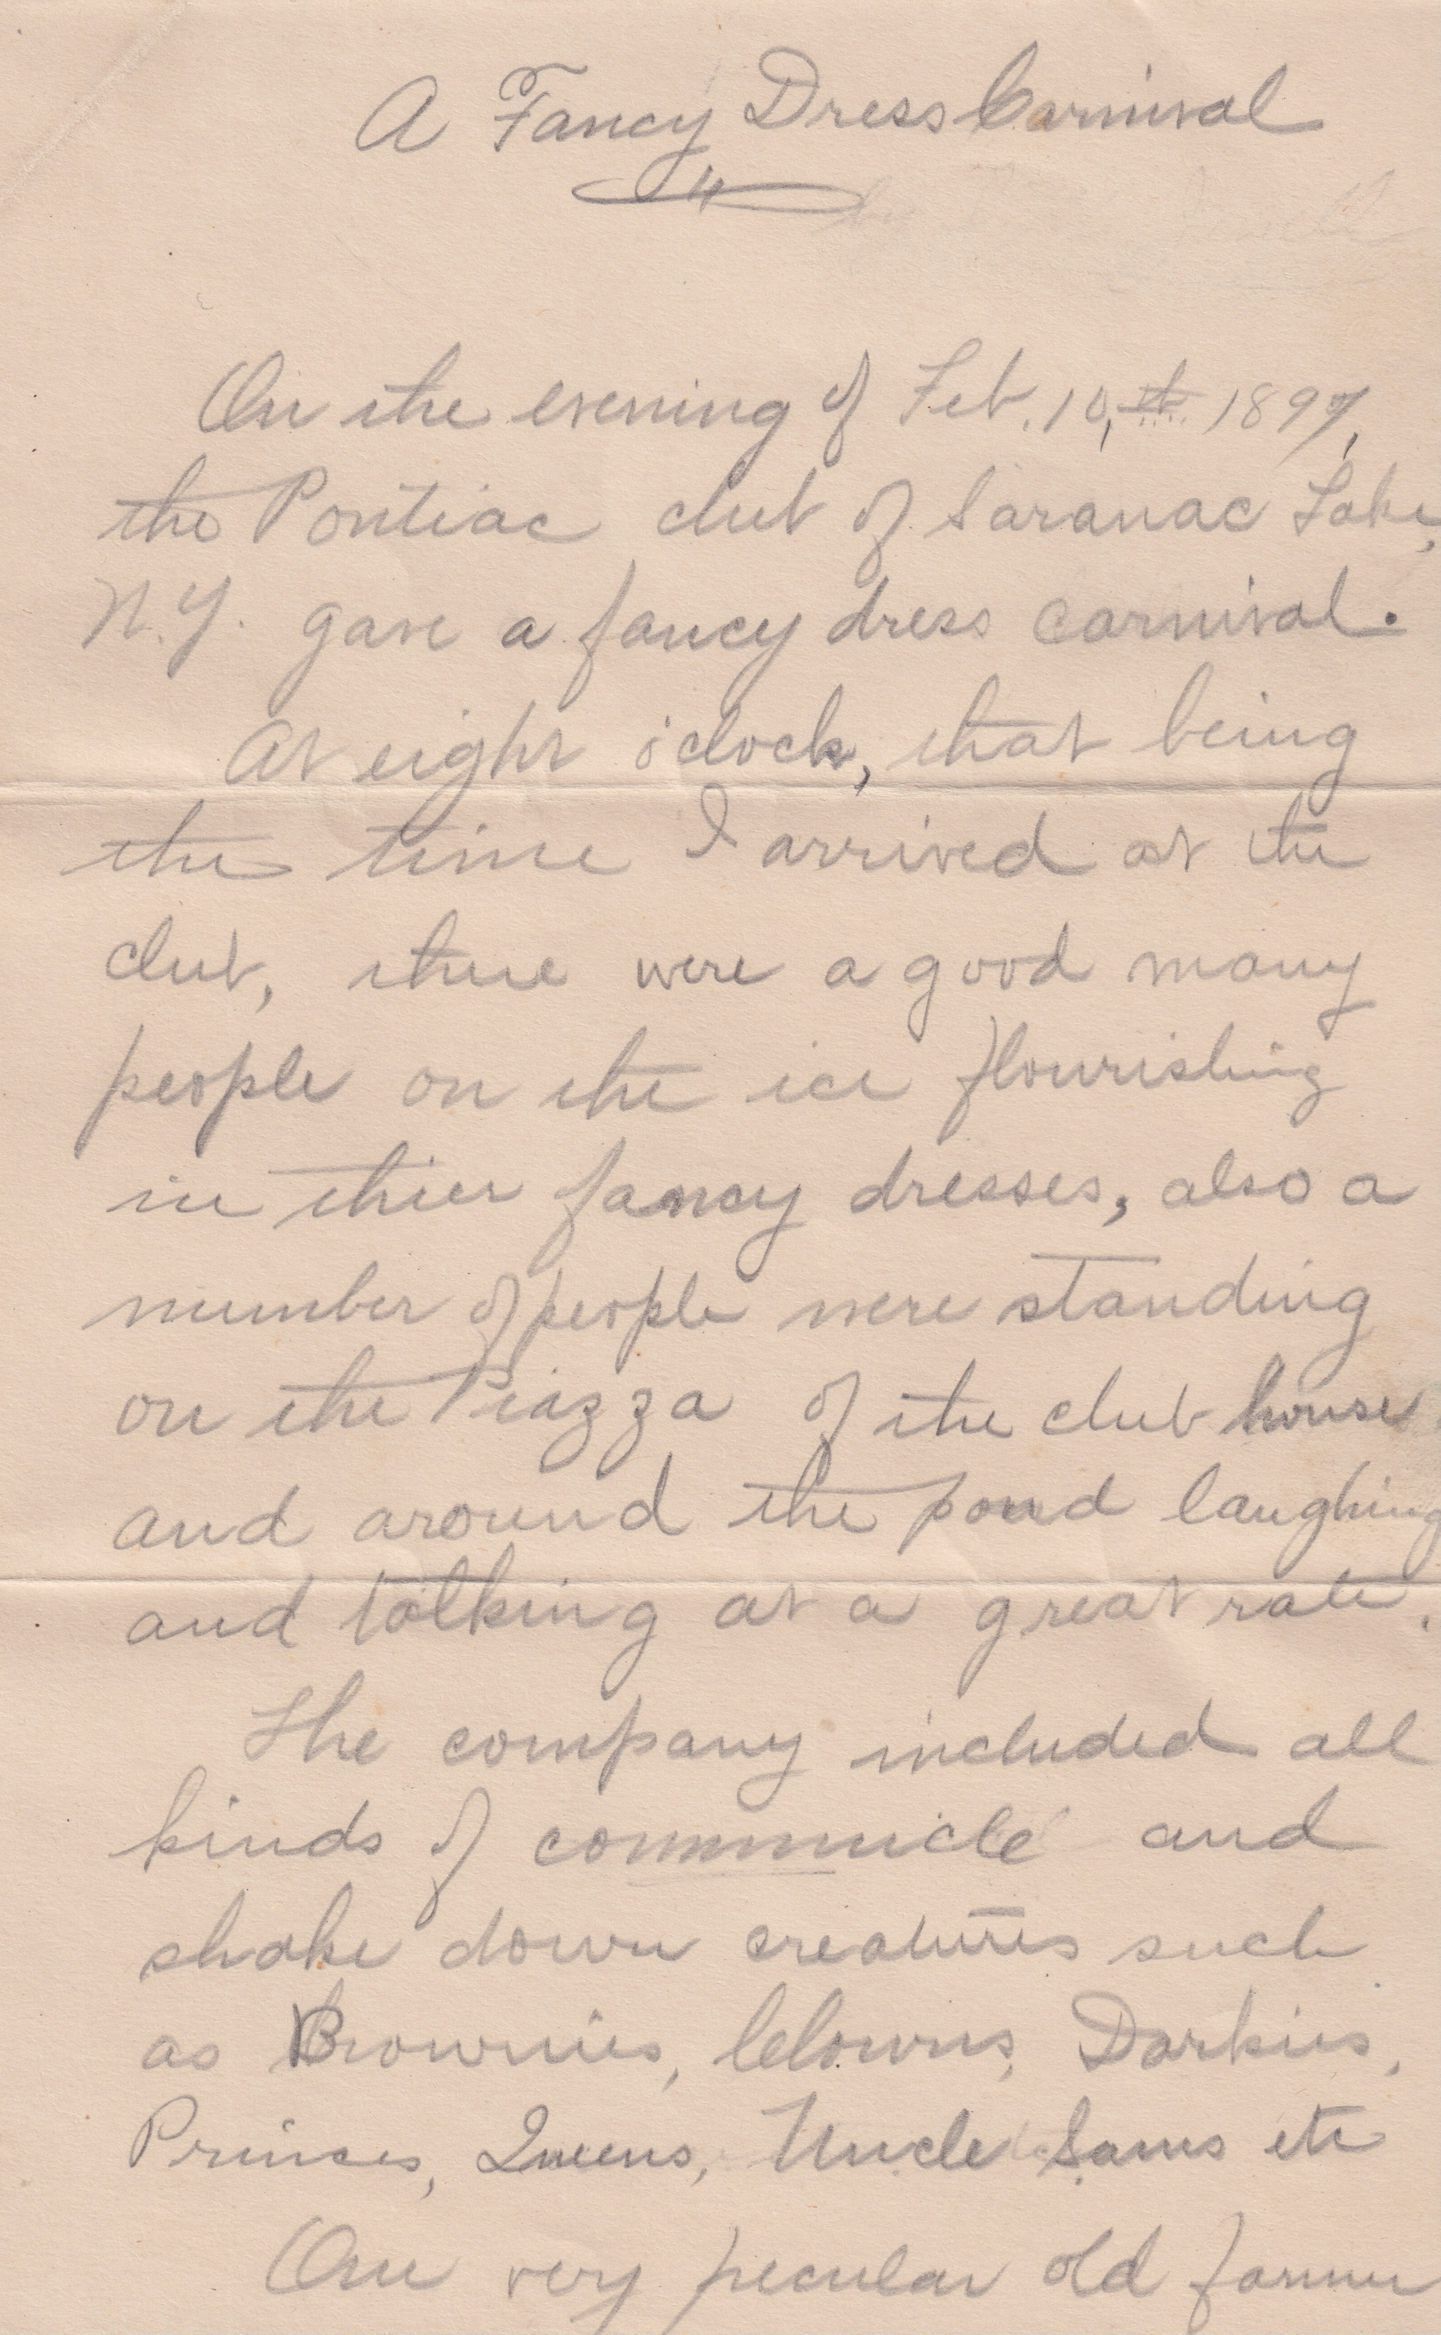 A Fancy Dress Carnival
On the evening of Feb. 10, th 1897,
the Pontiac club of Saranac Lake,
N.Y. gave a fancy dress carnival.
At eight o'clock, that being
the time I arrived at the
club, there were a good many
people on the ice flourishing
in thier fancy dresses, also a
number of people were standing
on the Piazza of the club house
and around the pond laughing
and talking at a great rate.
The company included all
kinds of and
shake down creatures such
as Brownies, Clowns, Darkies,
Princes, Queens, Uncle Sams etc
One very pecular old farmer